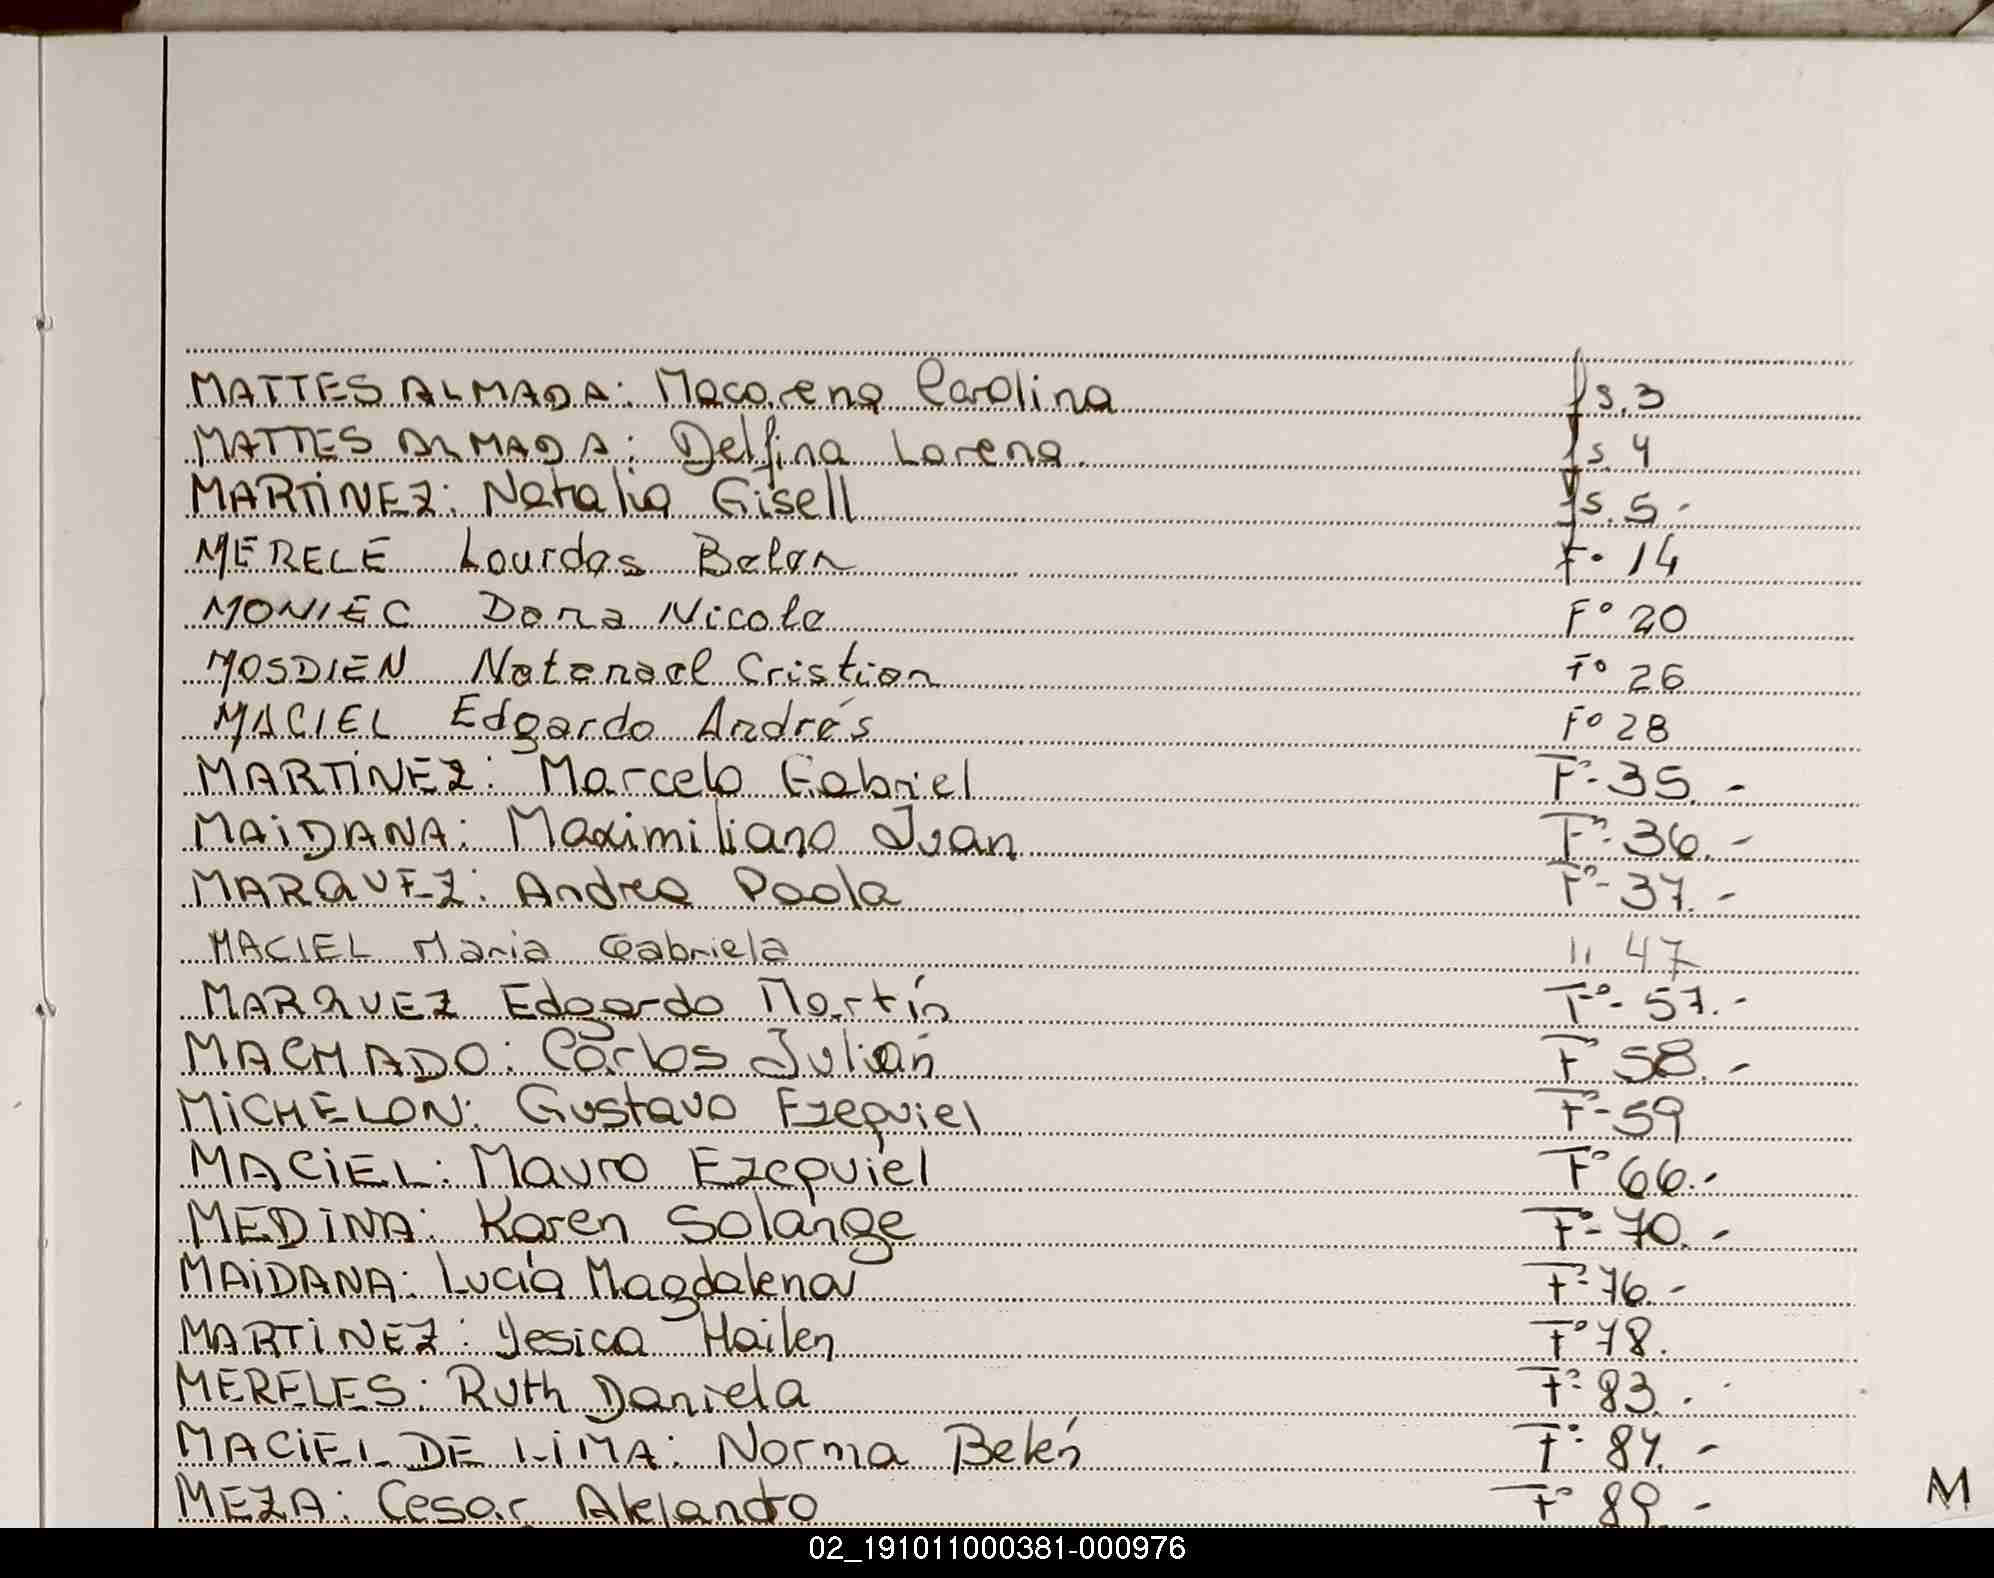 MATTES ALMADA: Macarena Carolina fs. 3
MATTES ALMADA: Delfina Lorena. fs. 4
MARTINEZ: Natalia Gisell fs. 5.-
MERELE Lourdes Belen F° 14
MONIEC Dana Nicole F° 20
MOSDIEN Natanael Cristian F° 26
MACIEL Edgardo Andrés F° 28
MARTINEZ: Marcelo Gabriel F°- 35.-
MAIDANA: Maximiliano Ivan F°- 36.-
MARQUEZ: Andrea Paola F°- 37.-
MACIEL Maria Gabriela " 47
MARQUEZ Edgardo Martín F°- 57.-
MACHADO: Carlos Julián F° 58.-
MICHELON: Gustavo Ezequiel F°- 59
MACIEL: Mauro Ezequiel F° 66.-
MEDINA: Karen Solange F°- 70.-
MAIDANA: Lucía Magdalena F°- 76.-
MARTINEZ: Yesica Hailen F° 78.
MERELES: Ruth Daniela F°- 83.
MACIEL DE LIMA: Norma Belén F°- 84.-
MEZA: Cesar Alejandro F° 89.-
M
02_191011000381-000976